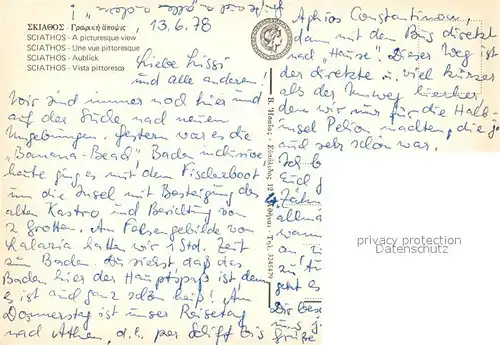 13.6.78
ΣΚΙΑΘΟΣ - Γραφική άποψις
SCIATHOS - A picturesque view
SCIATHOS - Une vue pittoresque
SCIATHOS - Aublick
SCIATHOS - Vista pittoresca
Liebe Lissi
und alle anderen!
Wir sind immer noch hier und
auf der Suche nach neuen
Umgebungen. Gestern war es die
"Banana-Beach" Baden inclusive
heute ging es mit dem Fischerboot
um die Insel mit Besteigung des
alten Kastro und Besichtung von
2 Grotten. Am Felsengebilde von
Kalaria hatten wir 1 Std. Zeit
zum Baden. Du siehst daß das
Baden hier der Hauptspaß ist denn
es ist auch ganz schön heiß! Am
Donnerstag ist unser Reisetag
nach Athen, d.h. per Schiff bis
Aghios Constantinou,
dann mit dem Bus direkt
nach "Hause". Dieser Weg ist
der direkte u. viel kürzer
als der Umweg hierher
den wir nur für die Halb-
insel Pelion machten, die
auch sehr schön war.
Ich
allen
wann
an
zu
uns
Grüße
privacy protection
Datenschutz